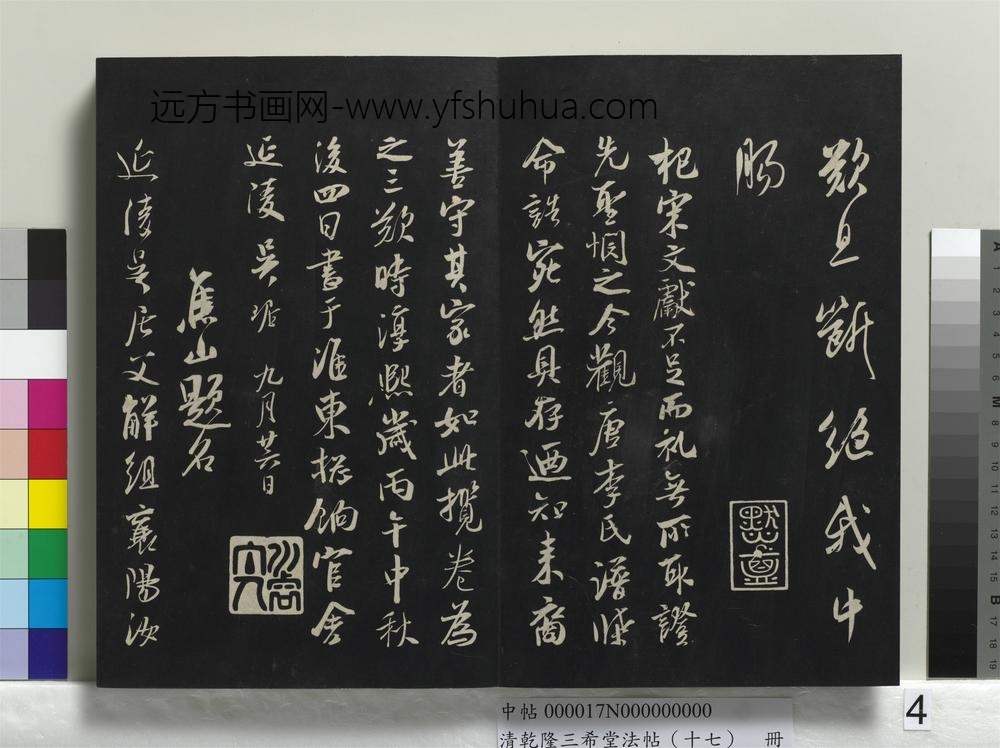 远方书画网-www.yfshuhua.com
歎且斷絕我中
腸
杞宋文獻不足而礼無所取證
先聖惘之今觀唐李氏譜牒
命誥宛然具存迺知来裔
善守其家者如此攬卷為
之三歎時淳熙歲丙午中秋
後四日書于淮東總餉官舍
延陵吳琚 九月廿六日
焦山題名
延陵吳居父解組襄陽汝
中帖 000017N000000000
清乾隆三希堂法帖（十七） 冊
4